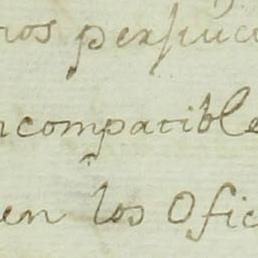 ros perjuic
ncompatible
en los Ofic